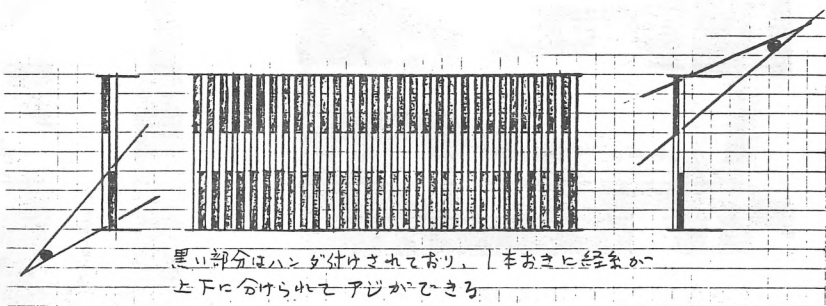 黒い部分はハンダ付けされており、1本おきに経糸が
上下に分けられてアジができる